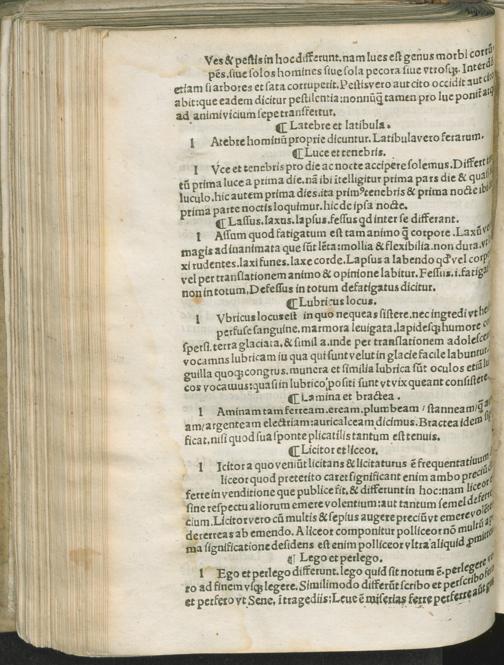 Ves & pestis in hoc differunt. nam lues est genus morbi
pẽs. siue solos homines siue sola pecora siue vtrosqȝ.
etiam si arbores et sata corruperit. Pestis vero aut cito occidit aut
abit: que eadem dicitur pestilentia: nonnũqȝ tamen pro lue ponit̃
ad animi vicium sepe transfertur.
¶ Latebre et latibula.
l Atebre hominũ proprie dicuntur. Latibula vero ferarum.
¶ Luce et tenebris.
l Vce et tenebris pro die ac nocte accipere solemus.
tñ prima luce a prima die. nã ibi ĩtelligitur prima pars die &
luculo. hic autem prima dies. ita prim⁹ tenebris & prima nocte ibi
prima parte noctis loquimur. hic de ipsa nocte.
¶ Lassus. laxus. lapsus. fessus qd inter se differant.
l Assum quod fatigatum est tam animo q̃ corpore. Laxũ
magis ad inanimata que sũt lẽta: mollia & flexibilia. non dura. vt
xi rudentes. laxi funes. laxe corde. Lapsus a labendo qd̓ vel
vel per translationem animo & opinione labitur. Fessus. i.
non in totum. Defessus in totum defatigatus dicitur.
¶ Lubricus locus.
l Vbricus locus est in quo nequeas sistere. nec ingredi vt
perfuse sanguine. marmora leuigata. lapidesqȝ humore
spersi. terra glaciata. & simil a. inde per translationem
vocamns lubricam iu qua qui sunt velut in glacie facile labuntur.
guilla quoqȝ congrus. munera et similia lubrica sũt oculos etiã
cos vocamus: quasi in lubrico positi sunt vt vix queant consistere.
¶ Lamina et bractea.
l Aminam tam ferream. eream. plumbeam / stanneam /
am/ argenteam electriam: auricalceam dicimus. Bractea idem
ficat. nisi quod sua sponte plicatilis tantum est tenuis.
¶ Licitor et liceor.
l Icitor a quo veniũt licitans & licitaturus ẽ frequentatiuum
liceor quod preterito caret significant enim ambo
ferre in venditione que publice fit. & differunt in hoc: nam liceor
sine respectu aliorum emere volentium: aut tantum semel
cium. Licitor vero cũ multis & sepius augere preciũ vt emere
dererreas ab emendo. A liceor componitur polliceor nõ multũ
ma significatione desidens est enim polliceor vltra aliquid
¶ Lego et perlego.
l Ego et perlego differunt. lego quid sit notum ẽ. perlegere
ro ad finem vsqȝ legere. Simili modo differũt scribo et
et perfero vt Sene. i tragediis: Leue ẽ miserias ferre perferre